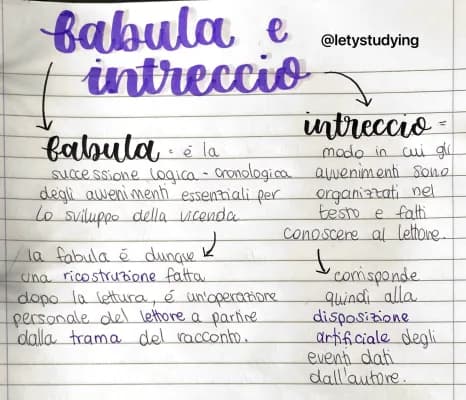 fabula e
intreccio
@letystudying
fabula = é la
successione logica - cronologica
degli avvenimenti essenziali per
lo sviluppo della vicenda
la fabula é dunque
una ricostruzione fatta
dopo la lettura, é un'operazione
personale del lettore a partire
dalla trama del racconto.
intreccio =
modo in cui gli
avvenimenti sono
organizzati nel
testo e fatti
conoscere al lettore.
corrisponde
quindi alla
disposizione
artificiale degli
eventi dati
dall'autore.